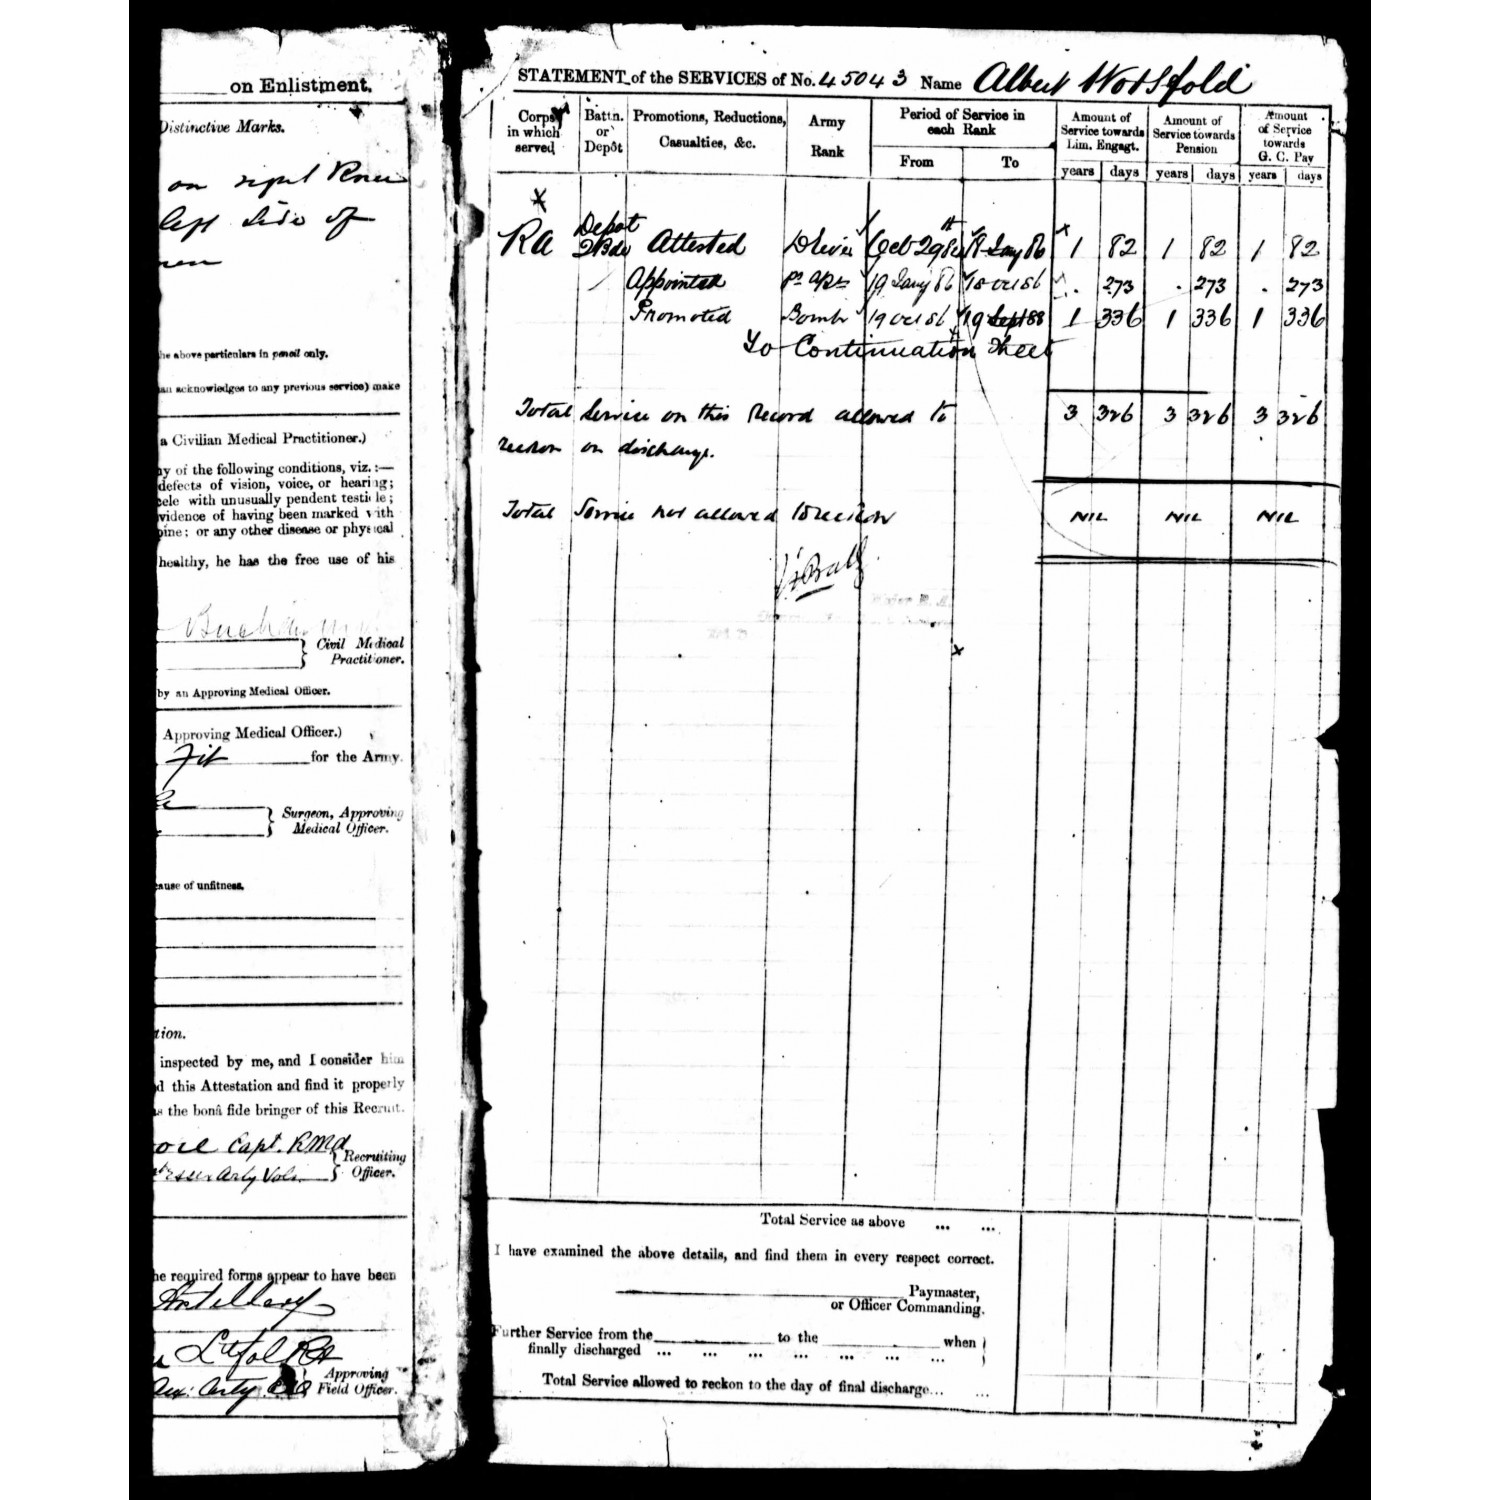 on Enlistment.
Distinctive Marks.
on right Knee
left side of
he above particulars in pencil only.
an acknowledges to any previous service) make
a Civilian Medical Practitioner.)
ny of the following conditions, viz.:—
defects of vision, voice, or hearing;
cele with unusually pendent testicle;
vidence of having been marked with
pine; or any other disease or physical
healthy, he has the free use of his
Civil Medical
Practitioner.
by an Approving Medical Officer.
Approving Medical Officer.)
Fit for the Army.
Surgeon, Approving
Medical Officer.
cause of unfitness.
tion.
inspected by me, and I consider him
d this Attestation and find it properly
s the bonâ fide bringer of this Recruit.
Capt. RMA
Recruiting
Arty Vols Officer.
he required forms appear to have been
Artillery
Lt Col RA
Approving
Arty Field Officer.
STATEMENT of the SERVICES of No. 45043 Name Albert Worsfold
Corps in which served Battn. or Depôt Promotions, Reductions, Casualties, &c. Army Rank Period of Service in each Rank From To Amount of Service towards Lim. Engagt. years days Amount of Service towards Pension years days Amount of Service towards G. C. Pay years days
RA Depot 2 Bde Attested Driver Oct 29th 84 18 Jany 86 1 82 1 82 1 82
Appointed 19 Jany 86 18 Oct 86 . 273 . 273 . 273
Promoted Bombr 19 Oct 86 19 Sept 88 1 336 1 336 1 336
To Continuation Sheet
Total Service on this Record allowed to 3 326 3 326 3 326
reckon on discharge.
Total Service not allowed to reckon NIL NIL NIL
Total Service as above ... ...
I have examined the above details, and find them in every respect correct.
Paymaster,
or Officer Commanding.
Further Service from the to the when
finally discharged ... ... ... ... ... ... ...
Total Service allowed to reckon to the day of final discharge... ...